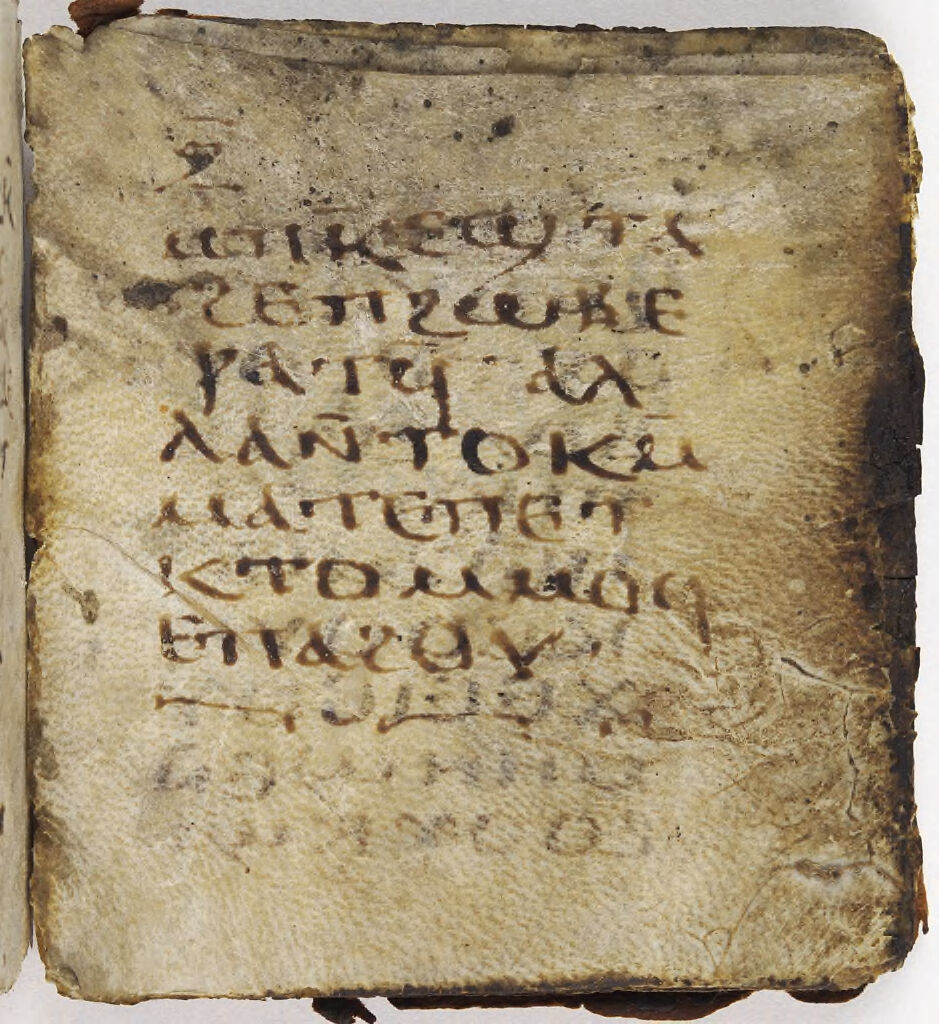 ⲝ̅
ⲙⲡⲕ̅ⲉϣⲧⲁ
ϩⲉⲡϩⲱⲃⲉ
ⲣⲁⲧϥ̅ ⲁⲗ
ⲗⲁⲛ̅ⲧⲟⲕⲙ̅
ⲙⲁⲧⲉⲡⲉⲧ
ⲕⲧⲟⲙⲙⲟϥ
ⲉⲡⲁϩⲟⲩ